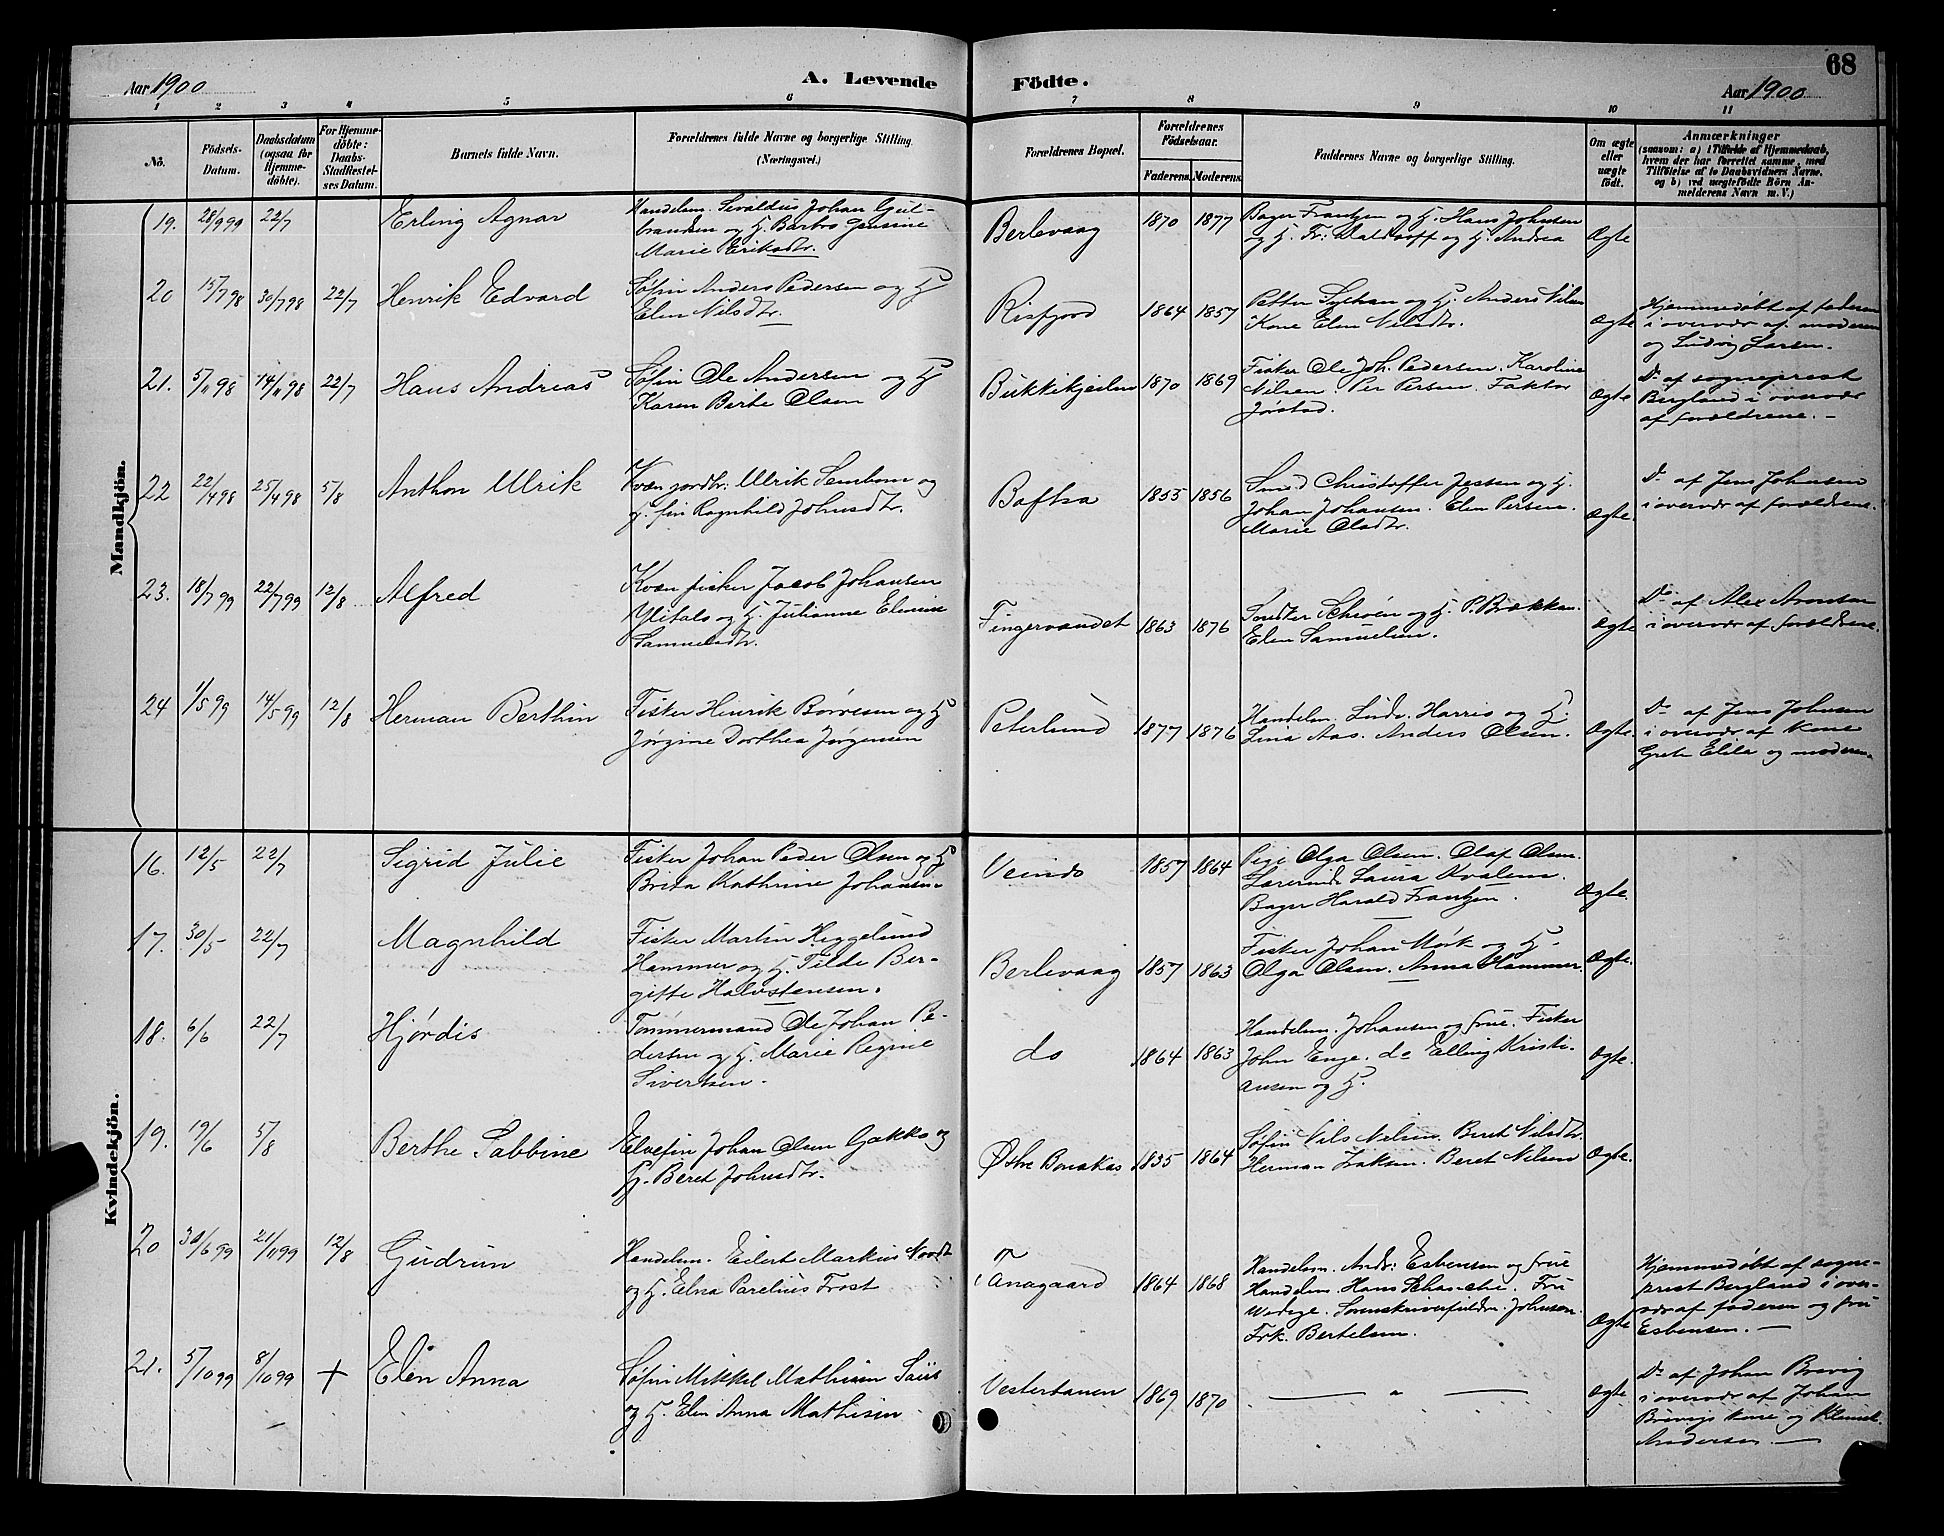 68
A. Levende Födte.
Aar 1900
Aar 1900
1 2 3 4 5 6 7 8 9 10 11
No.
Födsels-
Datum.
Daabsdatum
(ogsaa for
Hjemme-
döbte).
For Hjemme-
döbte:
Daabs-
Stadfestel-
ses Datum.
Barnets fulde Navn.
Forældrenes fulde Navne og borgerlige Stilling
(Næringsvei.)
Forældrenes Bopæl.
Forældrenes
Födselsaar.
Faderens. Moderens.
Faddernes Navne og borgerlige Stilling.
Om ægte
eller
uægte
födt.
Anmærkninger
(saasom: a) i Tilfælde af Hjemmedaab,
hvem der har forrettet samme, med
Tilföielse af to Daabsvidners Navne,
og b) ved uægtefödte Börn An-
melderens Navn m. V.)
Mandkjön.
19. 28/9 99 22/7 Erling Agnar
Handelsm. Sevaldus Johan Gul-
brandsen og H. Barbro Gensine
Marie Eriksdtr.
Berlevaag 1870 1877
Bager Frantzen og H. Hans Johnsen
og H. Fr: Waldorff og H. Andrea
Ægte
20 15/7 98 30/7 98 22/7 Henrik Edvard
Søfin Anders Pedersen og H
Elen Nilsdtr.
Risfjord 1864 1857
Petter og H. Anders Nilsen
Kone Elen Nilsdtr.
Ægte
Hjemmedøbt af faderen
i overvær af moderen
og Ludvig Larsen.
21. 5/11 98 14/11 98 22/7 Hans Andreas
Søfin Ole Andersen og H
Karen Berte Olsen
Bukkikjeilen 1870 1869
Fisker Ole Joh. Pedersen. Karoline
Nilsen. Per Persen. Faktor
Jøstad.
Ægte
Do af sogneprest
Bergland i overvær
af forældrene. –
22 22/4 98 25/4 98 5/8 Anthon Ulrik
Kvæn jordbr: Ulrik Sembom og
H. fin Ragnhild Johnsdtr.
Boftsa 1855 1856
Smed Christoffer Jessen og H.
Johan Johansen. Elen Persen.
Marie Oladtr.
Ægte.
Do af Jens Johnsen
i overvær af forældrene.
23. 18/7 99 22/7 99 12/8 Alfred
Kvæn fisker Jacob Johansen
Ylitalo og H. Julianne Elmine
Samuelsdtr.
Fingervandet 1863 1876
Schøen og H. P. Brækkan.
Elen Samuelsen.
Ægte
Do af Alex Aronsen
i overvær af forældrene.
24 1/5 99 14/5 99 12/8 Herman Berthin
Fisker Henrik Børresen og H
Jørgine Dorthea Jørgensen
Peterlund 1877 1876
Handelsm. Ludv. Harris og H.
Lina Aas. Anders Olsen.
Ægte.
Do af Jens Johnsen
i overvær af Kone
Grete Elile og moderen.
Kvindekjön.
16. 12/5 22/7 Sigrid Julie
Fisker Johan Peder Olsen og H
Brita Kathrine Johansen.
Veinæs 1857 1864
Pige Olga Olsen. Olaf Olsen.
Lærerinde Laura Kvalem.
Bager Harald Frantzen.
Ægte.
17. 30/5 22/7 Magnhild
Fisker Martin Heggelund
Hammer og H. Tilde Ber-
gitte Halvstensen.
Berlevaag 1857 1863
Fisker Johan Mørk og H.
Olga Olsen. Anna Hammer.
Ægte.
18. 6/6 22/7 Hjørdis
Tømmermand Ole Johan Pe-
dersen og H. Marie Regine
Sivertsen.
do 1864 1863
Handelsm. Johansen og frue. Fisker
John Enge. do Elling Kristi-
ansen og H.
Ægte.
19. 19/6 5/8 Berthe Sabbine
Elvefin Johan Olsen Gakko og
H. Beret Johnsdtr.
Østre Bonakas 1835 1864
Søfin Nils Nilsen. Beret Nilsdtr.
Herman Isaksen. Beret Nilsen
Ægte.
20 30/6 99 21/11 99 12/8 Gudrun
Handelsm. Eilert Markus Nordt
og H. Elna Parelius Frost
Tanagaard 1864 1868
Handelsm. Andr: Esbensen og frue
Handelsm. Hans Schanche. Fru
Wedege. Sorenskriverfuldm. Johnson.
Frk. Bertelsen.
Ægte
Hjemmedøbt af sogne-
prest Bergland i over-
vær af faderen og fru
Esbensen. –
21. 5/10 99 8/10 99 + Elen Anna
Søfin Mikkel Mathisen Siis
og H. Elen Anna Mathisen
Vestertanen 1869 1870
— " —
Ægte
Do af Johan Brevig
i overvær af Johan
Brevigs kone og Klemet
Andersen. —